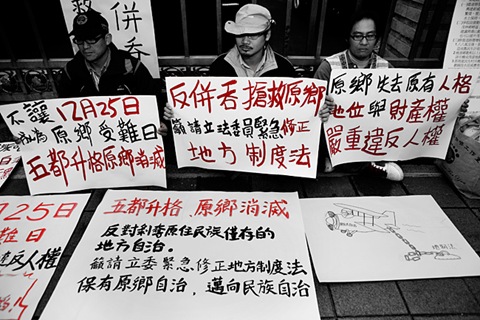 併吞
不讓12月25日
成為原鄉受難日
五都升格原鄉消滅
反併吞搶救原鄉
籲請立法委員緊急修正
地方制度法
原鄉失去原有人格
地位與財產權
嚴重違反人權
25日
難日
人權
五都升格 原鄉消滅
反對剝奪原住民族僅存的
地方自治。
籲請立委緊急修正地方制度法
保有原鄉自治,邁向民族自治